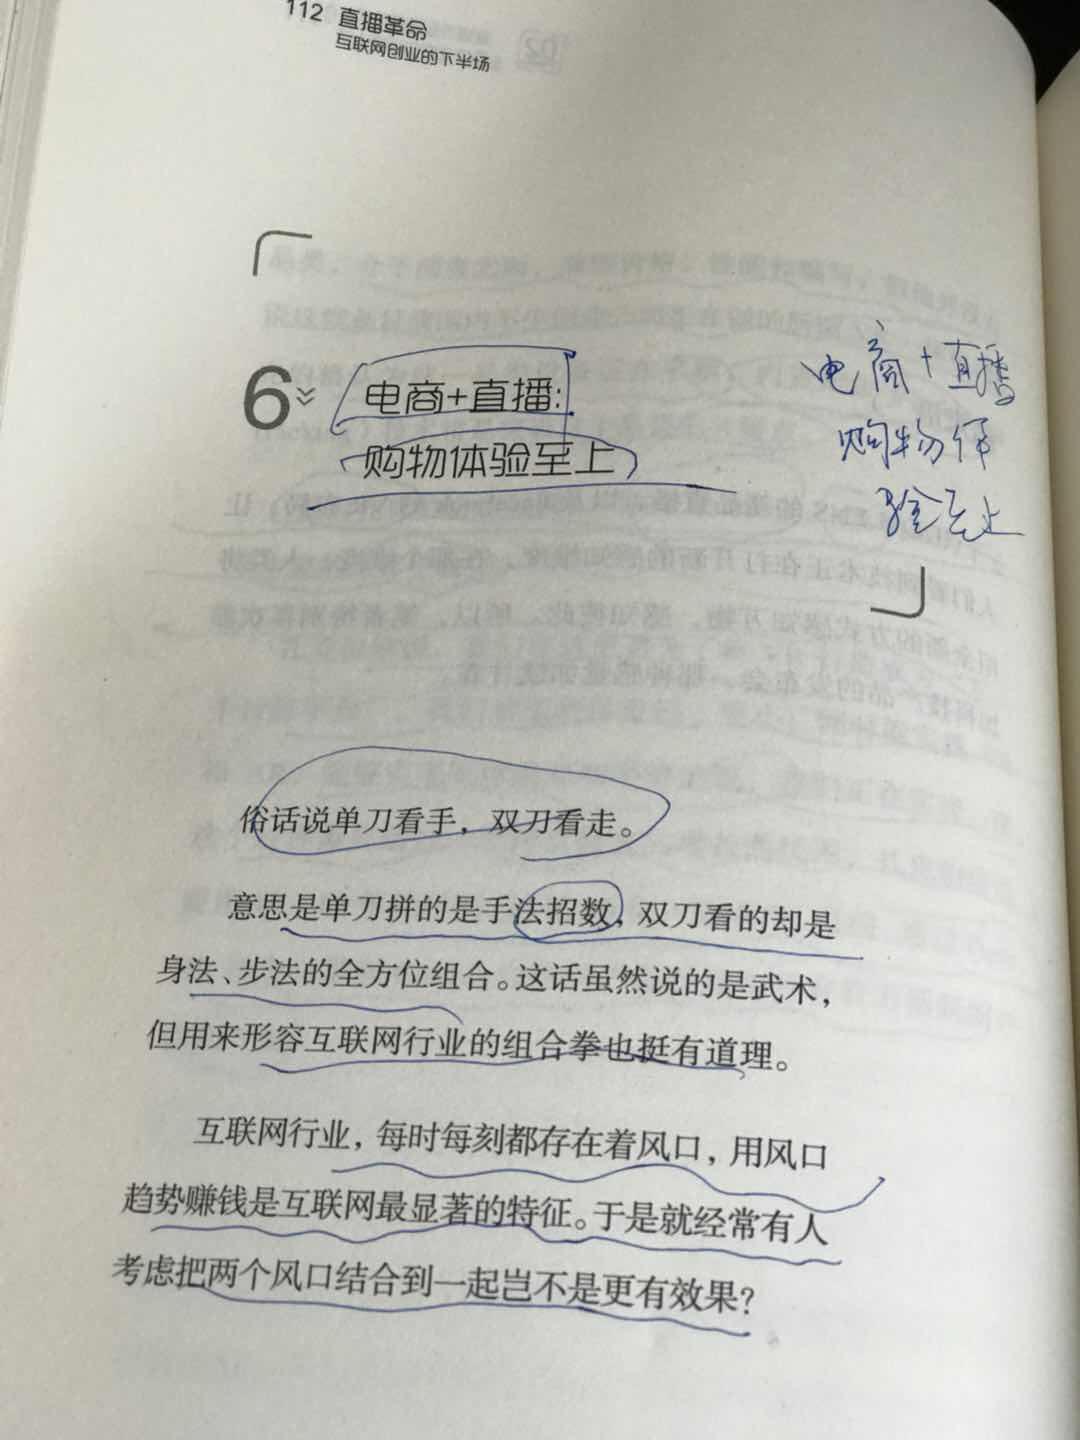 112 直播革命
互联网创业的下半场
6 电商+直播:
购物体验至上
电商+直播
购物体
验至上
俗话说单刀看手，双刀看走。
意思是单刀拼的是手法招数，双刀看的却是
身法、步法的全方位组合。这话虽然说的是武术，
但用来形容互联网行业的组合拳也挺有道理。
互联网行业，每时每刻都存在着风口，用风口
趋势赚钱是互联网最显著的特征。于是就经常有人
考虑把两个风口结合到一起岂不是更有效果？